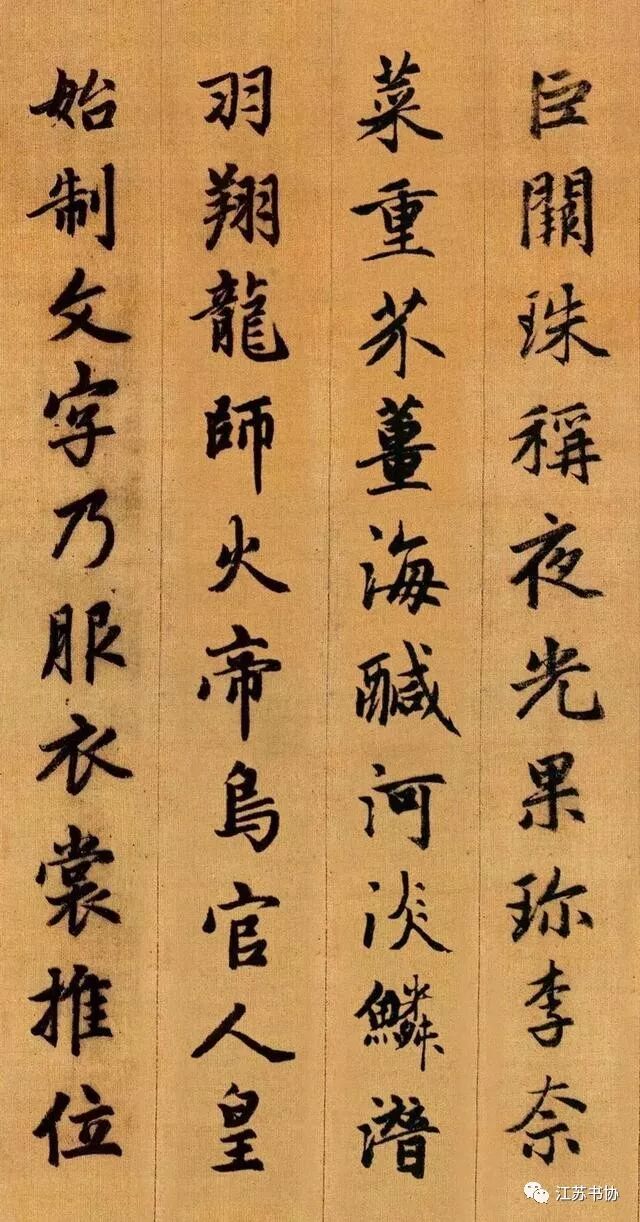 巨闕珠稱夜光果珎李柰
菜重芥薑海醎河淡鱗潛
羽翔龍師火帝鳥官人皇
始制文字乃服衣裳推位
江苏书协